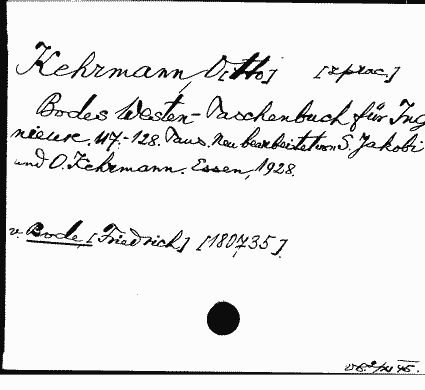 Kehrmann, O[tto] [zprac.]
Bodes Westen-Taschenbuch für Ing
nieure. 117.-128. Taus. Neu bearbeitet von S. Jakobi
und O. Kehrmann. Essen, 1928.
v. Bode, [Friedrich] [180735].